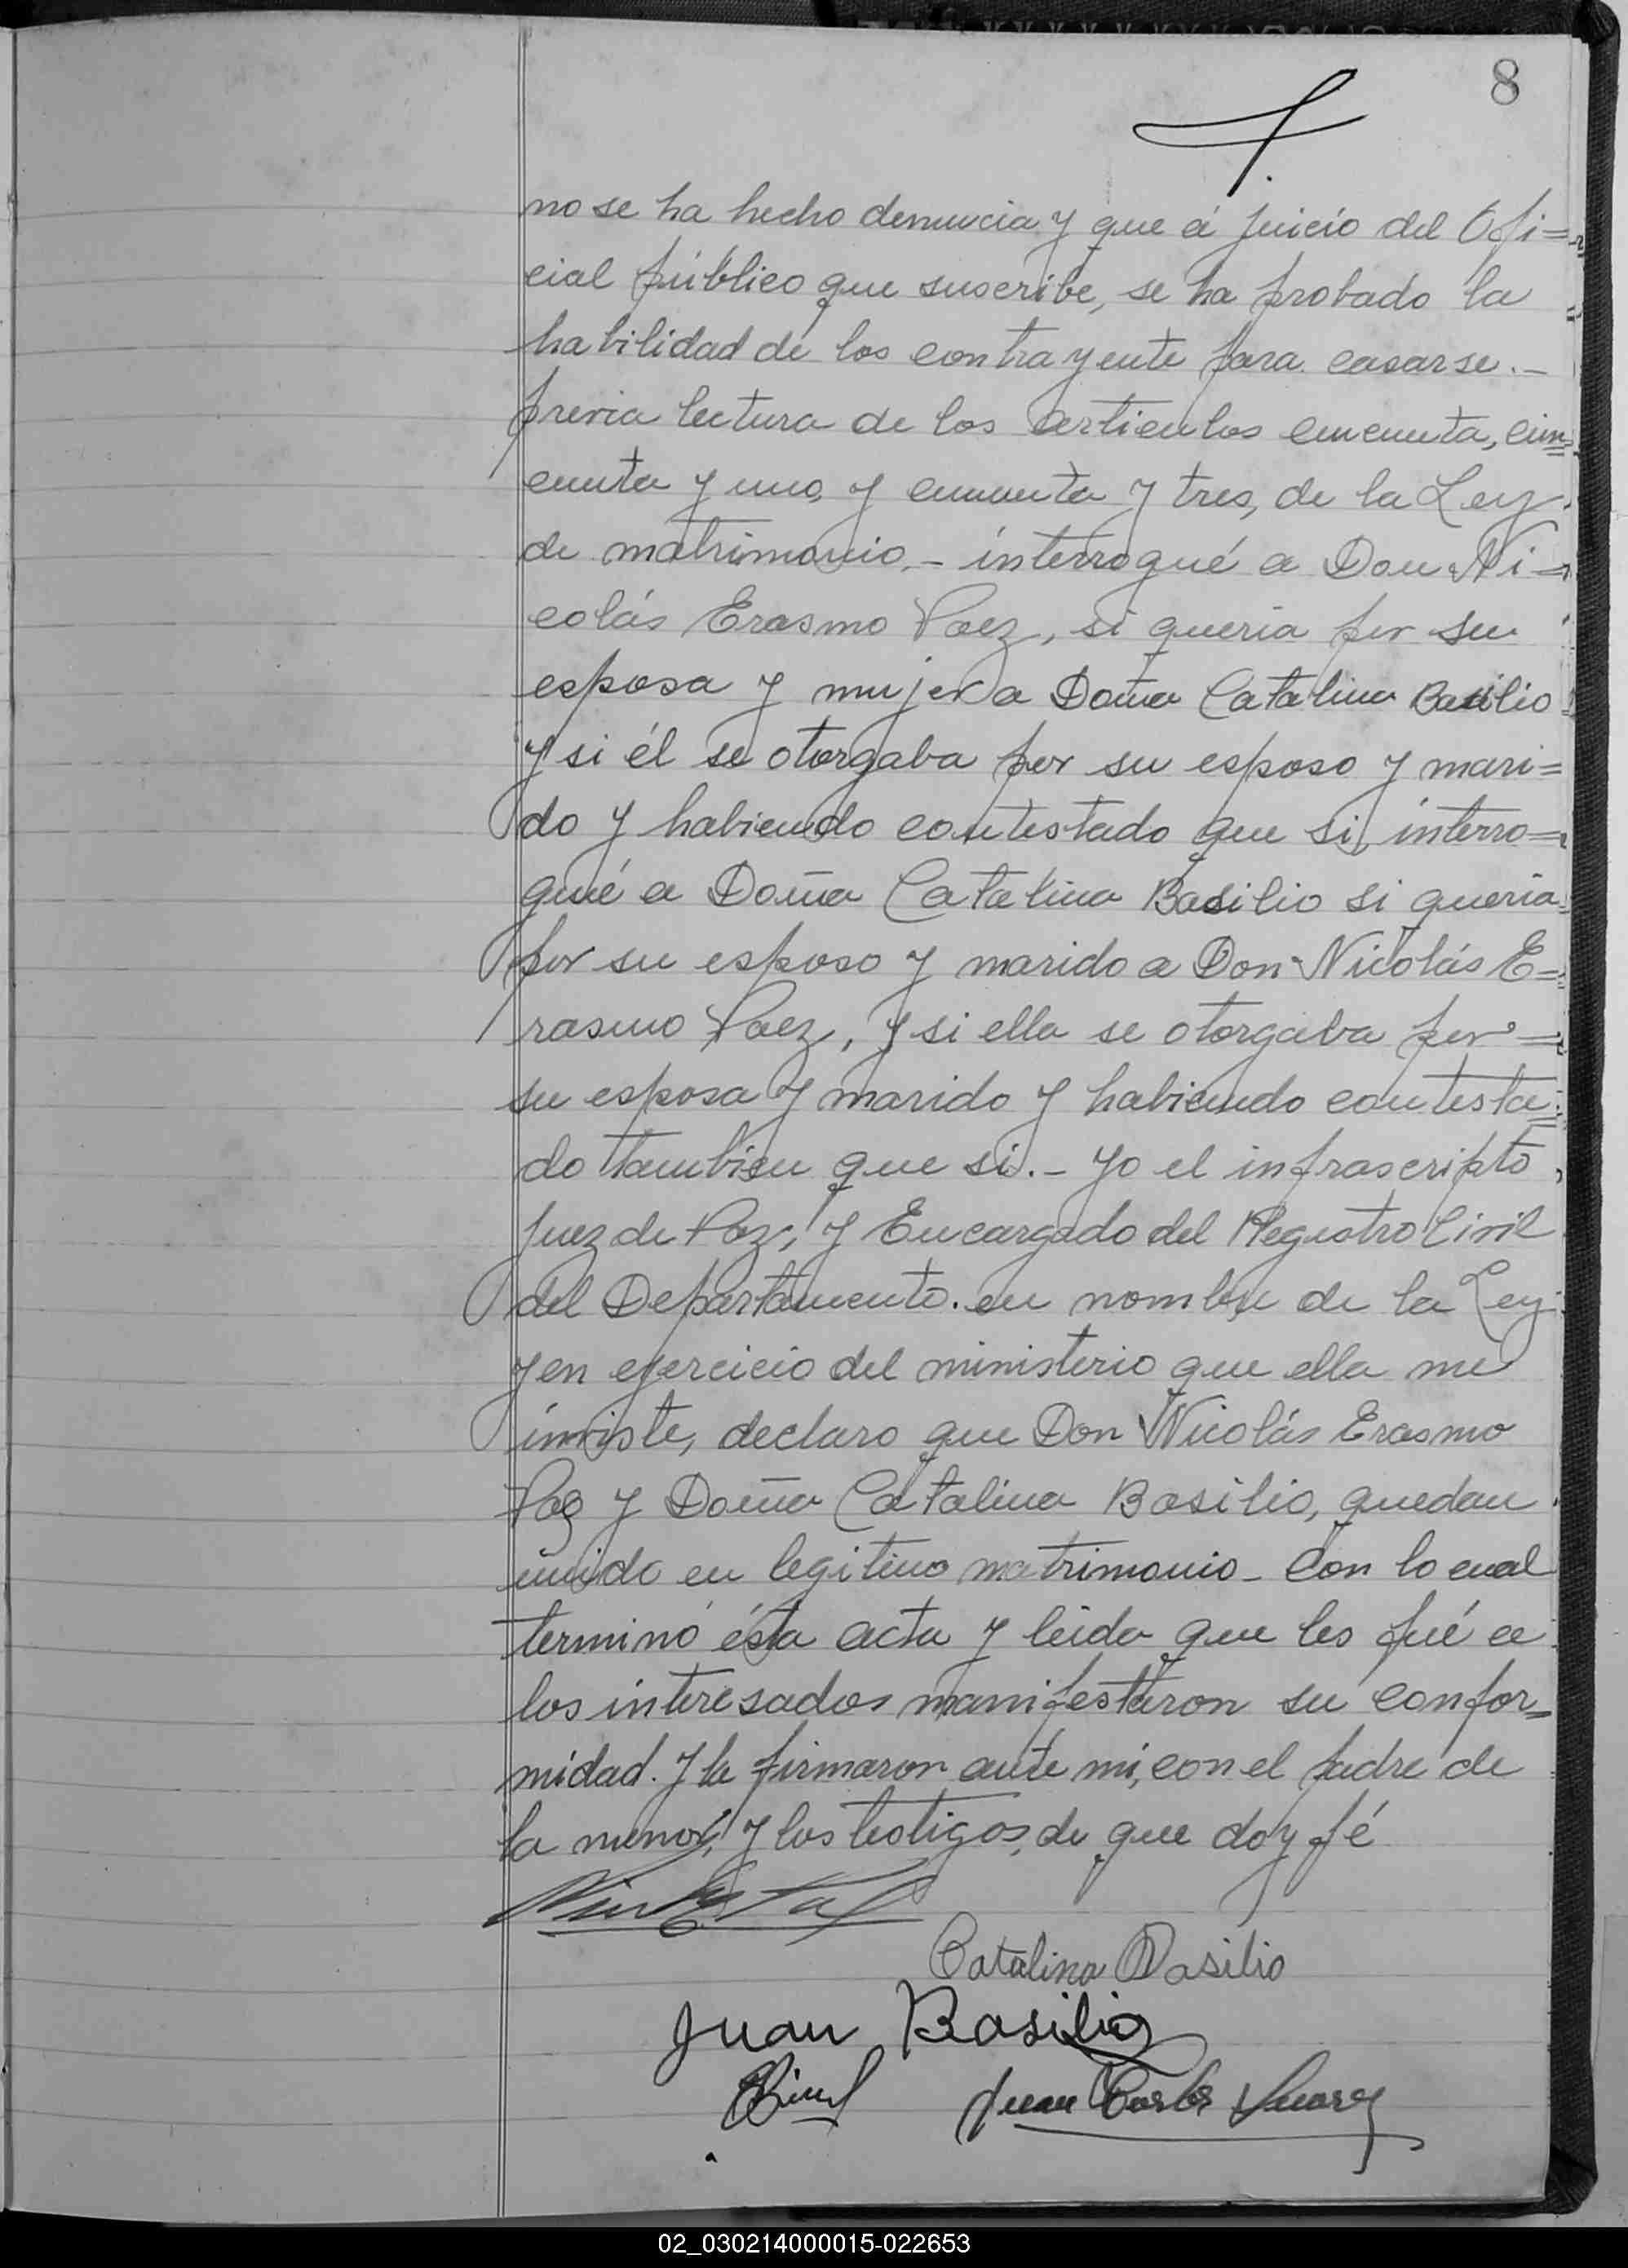 8
no se ha hecho denuncia y que á juicio del Ofi=
cial público que suscribe, se ha probado la
habilidad de los contrayente para casarse.-
previa lectura de los artículos cincuenta, cin=
cuenta y uno, y cincuenta y tres, de la Ley
de matrimonio.- interrogué a Don Ni=
colás Erasmo Paez, si quería por su
esposa y mujer a Doña Catalina Basilio
y si él se otorgaba por su esposo y mari=
do y habiendo contestado que si, interro=
gué a Doña Catalina Basilio si quería
por su esposo y marido a Don Nicolás E=
rasmo Paez, y si ella se otorgaba por=
su esposa y marido y habiendo contesta=
do tambien que si.- Yo el infrascripto
Juez de Paz, y Encargado del Registro Civil
del Departamento. en nombre de la Ley
y en ejercicio del ministerio que ella me
inviste, declaro que Don Nicolás Erasmo
Paez y Doña Catalina Basilio, quedan
unido en legitimo matrimonio- Con lo cual
terminó ésta acta y leida que les fué a
los interesados manifestaron su confor=
midad. y la firmaron ante mi, con el padre de
la menor, y los testigos, de que doy fé
Catalina Basilio
Juan Basilio
Juan Carlos Suarez
02_030214000015-022653